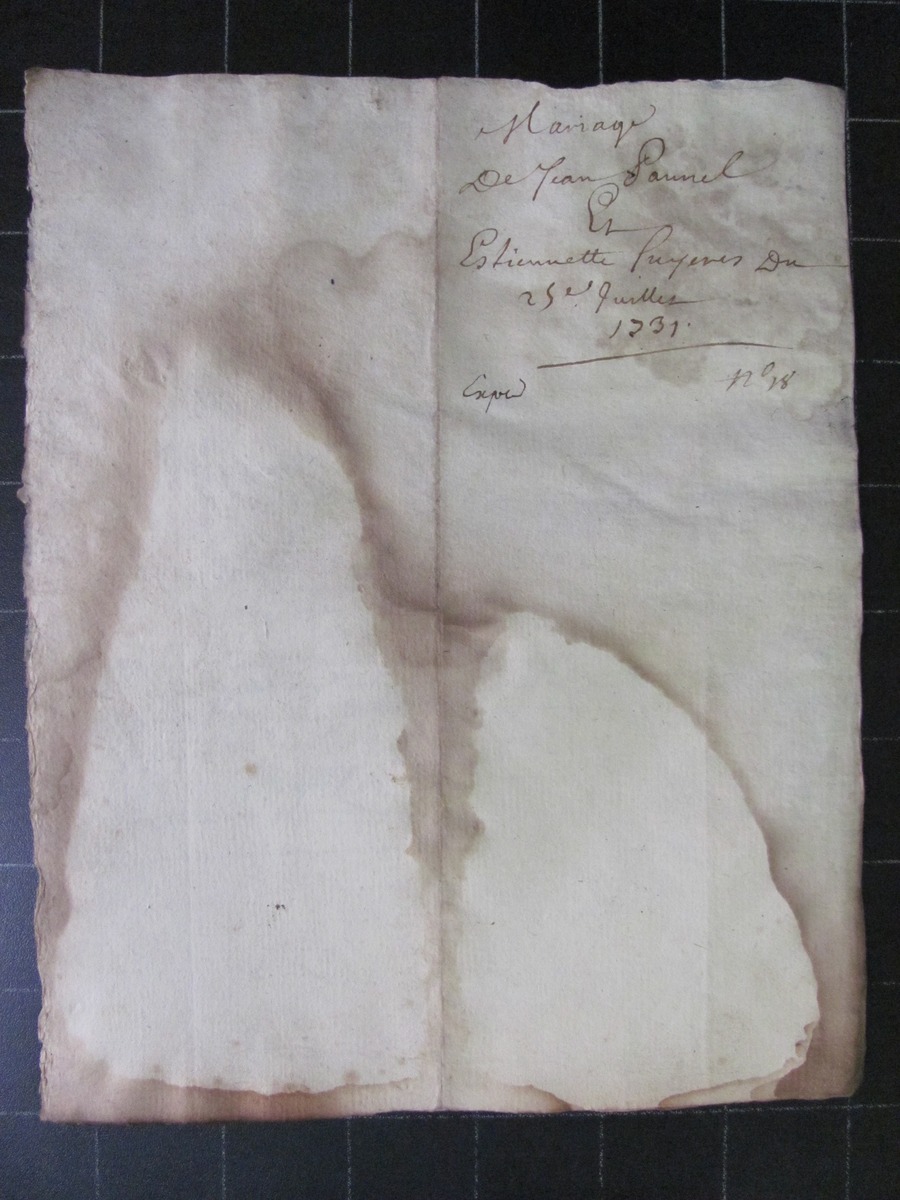 Mariage
De Jean Paunel
Et
Estiennette Puyeres Du
25e Juillet
1731.
Expéd
No 18